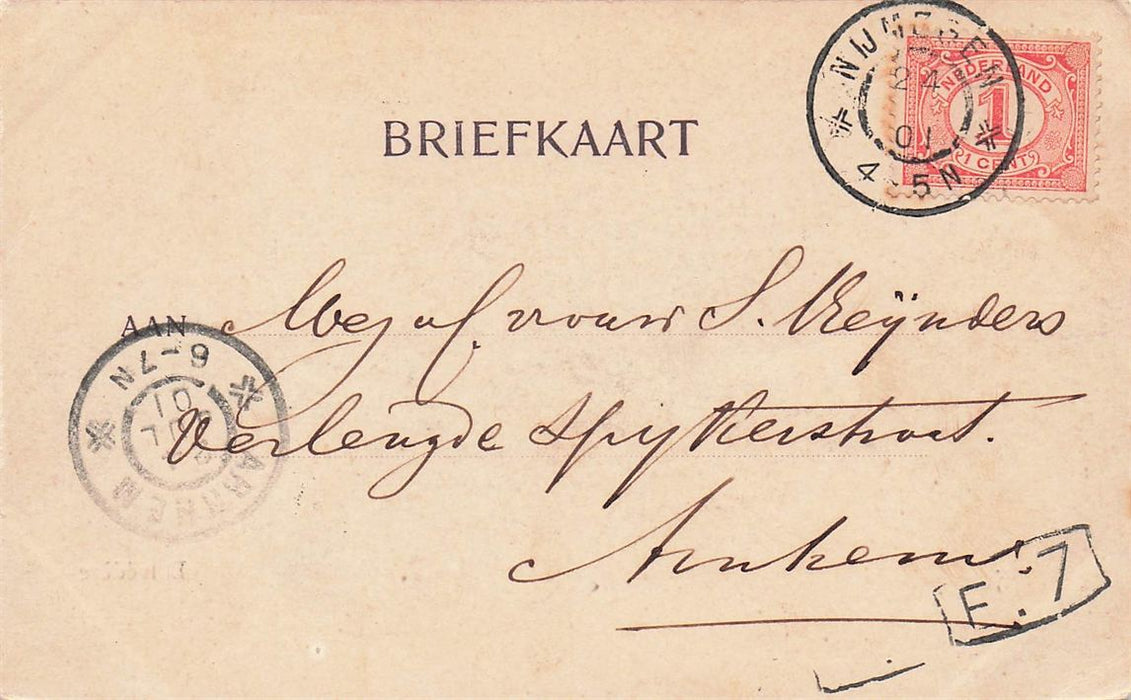 NIJMEGEN
24
01
4-5N
NEDERLAND
1
1 CENT
BRIEFKAART
AAN Mejufvrouw S. Reijnders
6-7N
01
ARNHEM
Verlengde Spijkerstraat.
Arnhem.
F.7